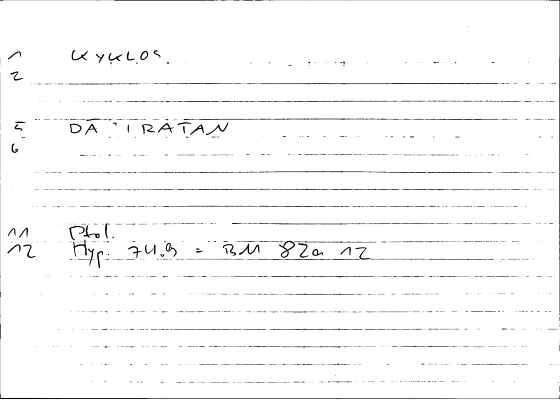 1 KYKLOS.
2
5 DĀ'IRATĀN
6
11 Ptol.
12 Hyp. 74.9 = BM 82a 12